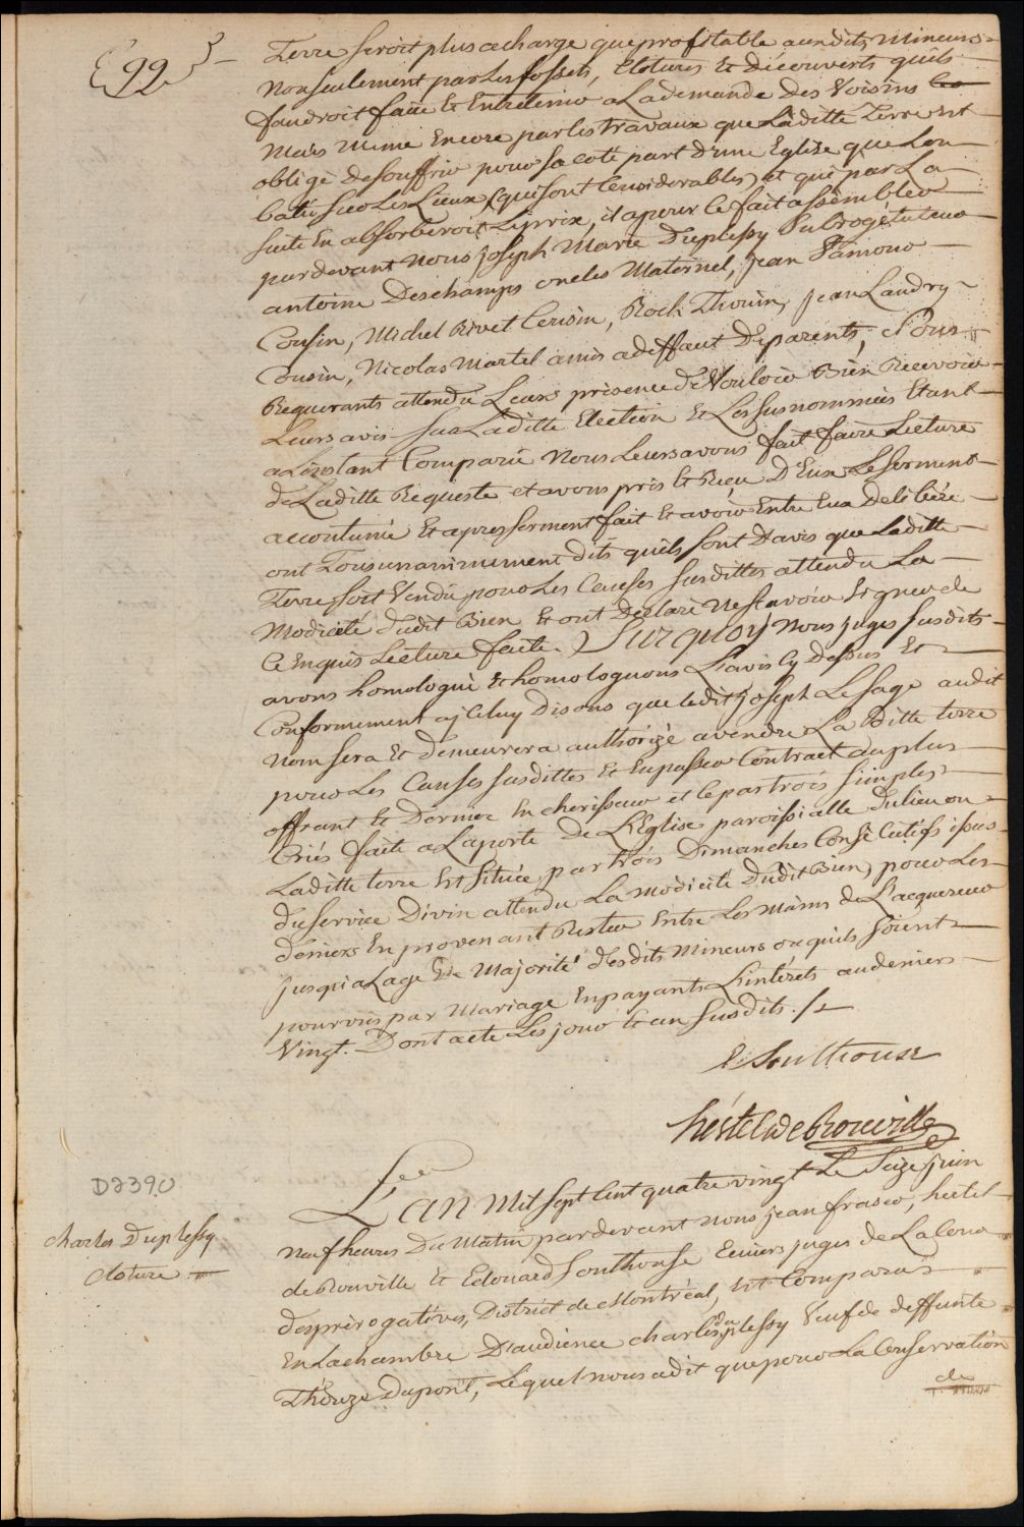 99
Terre seroit plus a charge que profitable auxdits mineurs
non seulement par les fossés, clotures et découverts qu'ils
faudroit faire et Entretenir a La demande des Voisins
mais même Encore par les travaux que Laditte Terre est
obligé de souffrir pour sa cote part d'une Eglise que Lon
batie sur les Lieux (qui sont Considerables) et qui par La
suite En absorberoit Le prix, il a pour ce fait assembler
pardevant nous joseph Marie Duplessy Subrogé tuteur
antoine Deschamps oncles Maternel, jean
Cousin, Michel Rivet Cousin, Roch Thouin, jean Landry
Cousin, Nicolas Martel amis a deffaut De parents, Nous
Requerants attendu Leurs présence de Vouloir Bien Recevoir
Leurs avis sur Laditte Election Et Les susnommées Etant
a L'instant Comparu Nous Leurs avons fait faire Lecture
de Laditte Requeste et avons pris et Reçu D'Eux Le serment
accoutumé Et apres serment fait Et avoir Entre Eux Deliberé
ont Tous unanimement dits qu'ils sont D'avis que Laditte
Terre soit Vendu pour Les Causes susdittes attendu La
Modicité dudit Bien Et ont Declaré ne scavoir signer de
Ce Enquis Lecture faite. Surquoy nous juges susdits
avons homologué et homologuons L'avis Cy dessus Et
Conformement a iCeluy Disons que ledit joseph Le sage audit
nom sera Et demeurera authorizé a vendre La ditte terre
pour Les Causes susdittes Et En passer Contract au plus
offrant et Dernier Encherisseur et Ce par trois simples
Criés faite a La porte De L'Eglise paroissialle du lieu ou
Laditte terre Est située par trois Dimanches Consécutifs issus
du service Divin attendu La modicité Dudit Bien, pour Les
deniers En provenant Rester Entre Les Mains de L'acquereur
jusqu'a L'age De Majorité desdits mineurs ou quils soient
pourvus par Mariage En payant L'intérets au deniers
Vingt. Dont acte Les jour et an susdits ./.
E. Southouse
hértel de Rouville
D2390
Charles Duplessy
Cloture
L'an Mil sept Cent quatre vingt Le Seize juin
neuf heures Du Matin pardevant nous jean frasco, hertel
de Rouville Et Edouard Southouse Ecuiers juges de La Cour
des prérogatives, District de Montréal, Est Comparu
En La chambre D'audience Charles duplessy Veuf de deffunte
Thereze Dupont, Lequel nous a dit que pour La Conservation
de